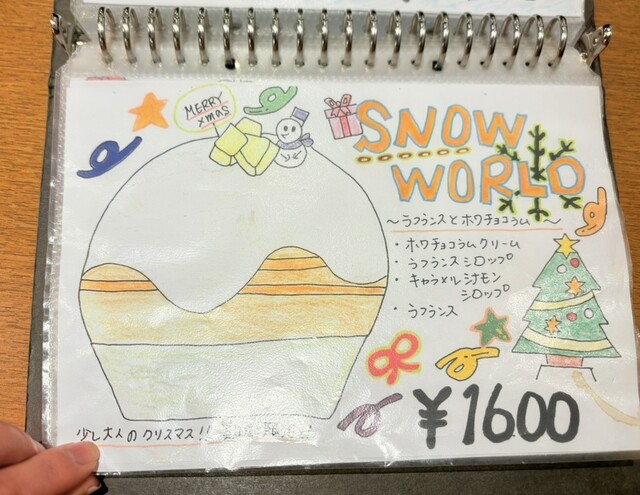 MERRY
xmas
SNOW
WORLD
～ラフランスとホワチョコラム～
・ホワチョコラムクリーム
・ラフランスシロップ
・キャラメルシナモン
シロップ
・ラフランス
¥1600
少し大人のクリスマス!!